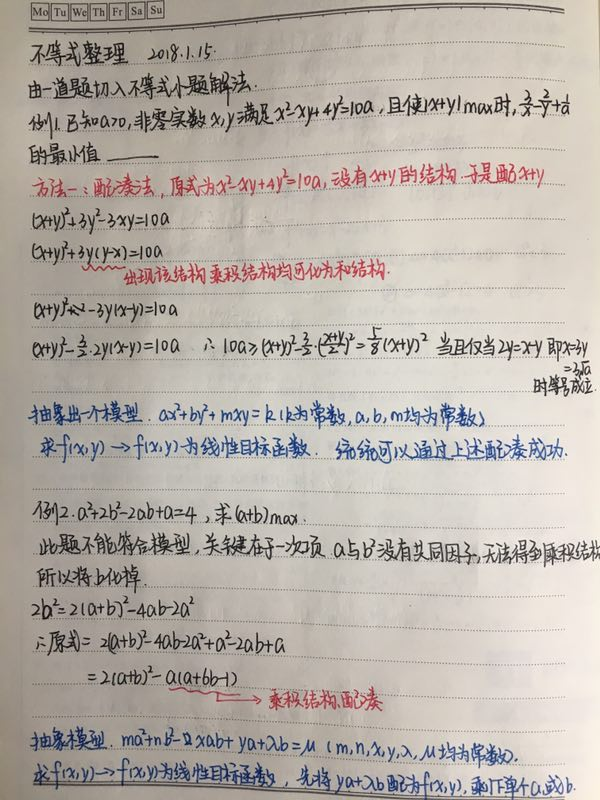 Mo Tu We Th Fr Sa Su
不等式整理 2018.1.15.
由一道题切入不等式小题解法.
例1.已知a>0,非零实数x,y满足x²-xy+4y²=10a,且使|x+y|max时,3/x-2/y+1/a
的最小值 ____
方法一:配凑法,原式为x²-xy+4y²=10a,没有x+y的结构.于是配x+y
(x+y)²+3y²-3xy=10a
(x+y)²+3y(y-x)=10a
出现该结构 乘积结构均可化为和结构.
(x+y)²-3y(x-y)=10a
(x+y)²-3/2·2y(x-y)=10a ∴10a≥(x+y)²-3/2·(x+y/2)²=5/8(x+y)² 当且仅当2y=x-y 即x=3y
=3√a
时等号成立.
抽象出一个模型. ax²+by²+mxy=k(k为常数,a,b,m均为常数)
求f(x,y)→f(x,y)为线性目标函数. 统统可以通过上述配凑成功.
例2.a²+2b²-2ab+a=4,求(a+b)max.
此题不能符合模型,关键在于一次项 a与b²没有共同因子,无法得到乘积结构
所以将b化掉.
2b²=2(a+b)²-4ab-2a²
∴原式=2(a+b)²-4ab-2a²+a²-2ab+a
=2(a+b)²-a(a+6b-1)
乘积结构,配凑
抽象模型. ma²+nb²-xab+ya+λb=μ(m,n,x,y,λ,μ均为常数).
求f(x,y)→f(x,y)为线性目标函数,先将ya+λb配为f(x,y),乘下单个a,或b.